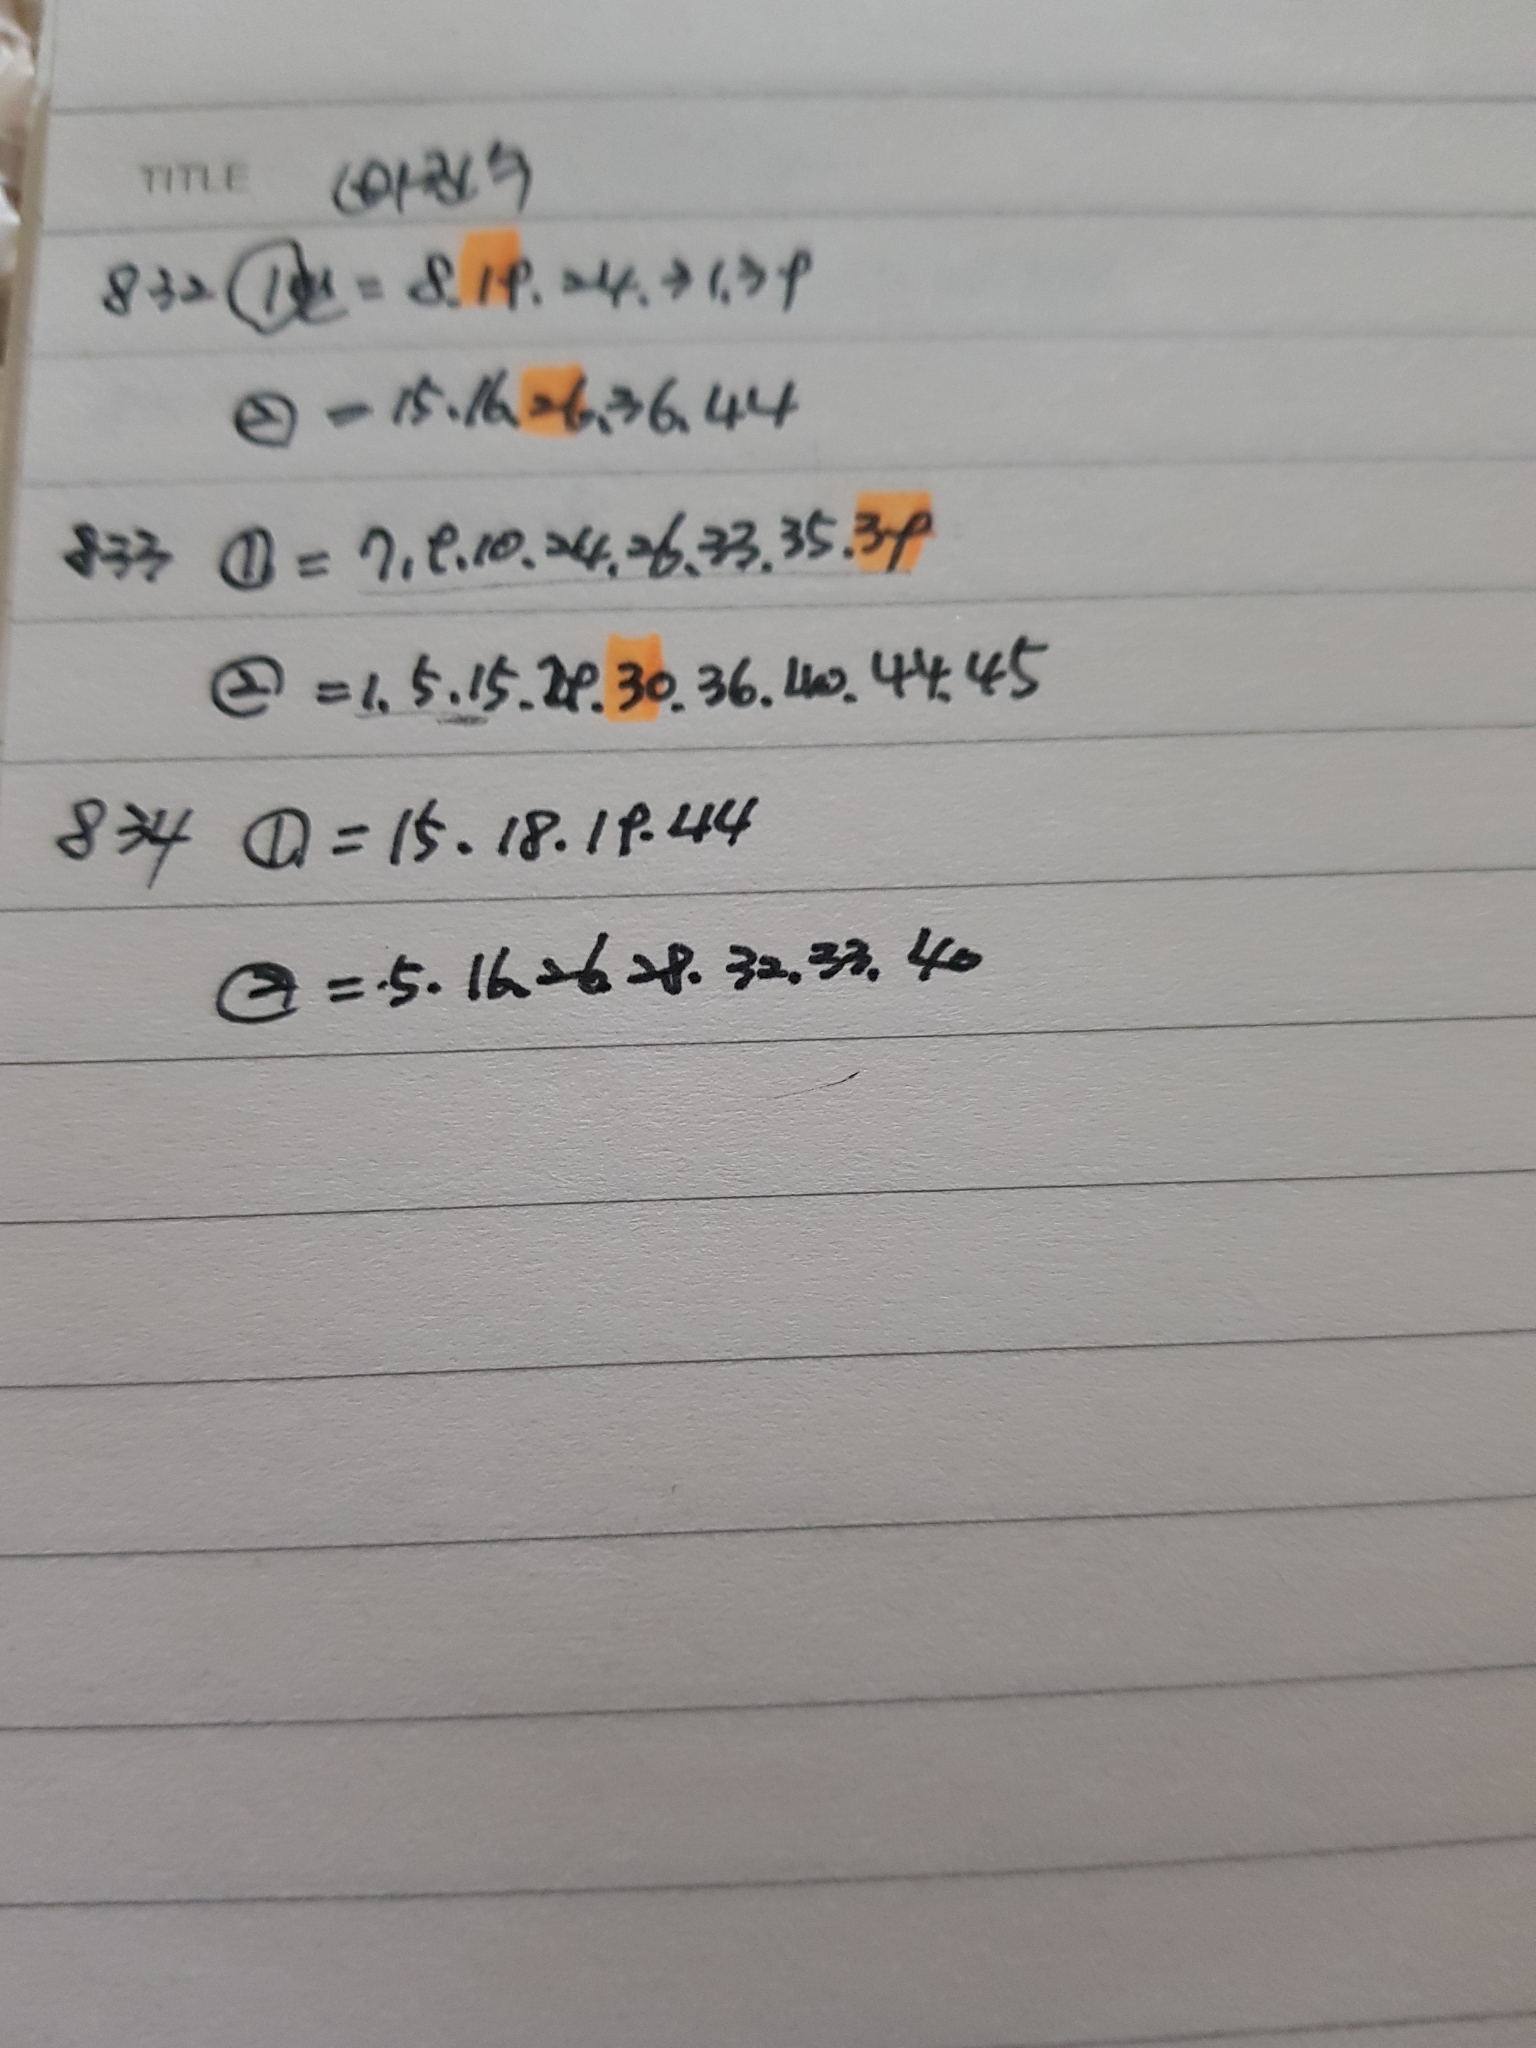 TITLE
832 ① = 8. 19. 24. 31. 39
② - 15. 16. 26. 36. 44
833 ① = 7. 9. 10. 24. 26. 33. 35. 39
② = 1. 5. 15. 29. 30. 36. 40. 44. 45
834 ① = 15. 18. 19. 44
② = 5. 16. 26. 28. 32. 33. 40